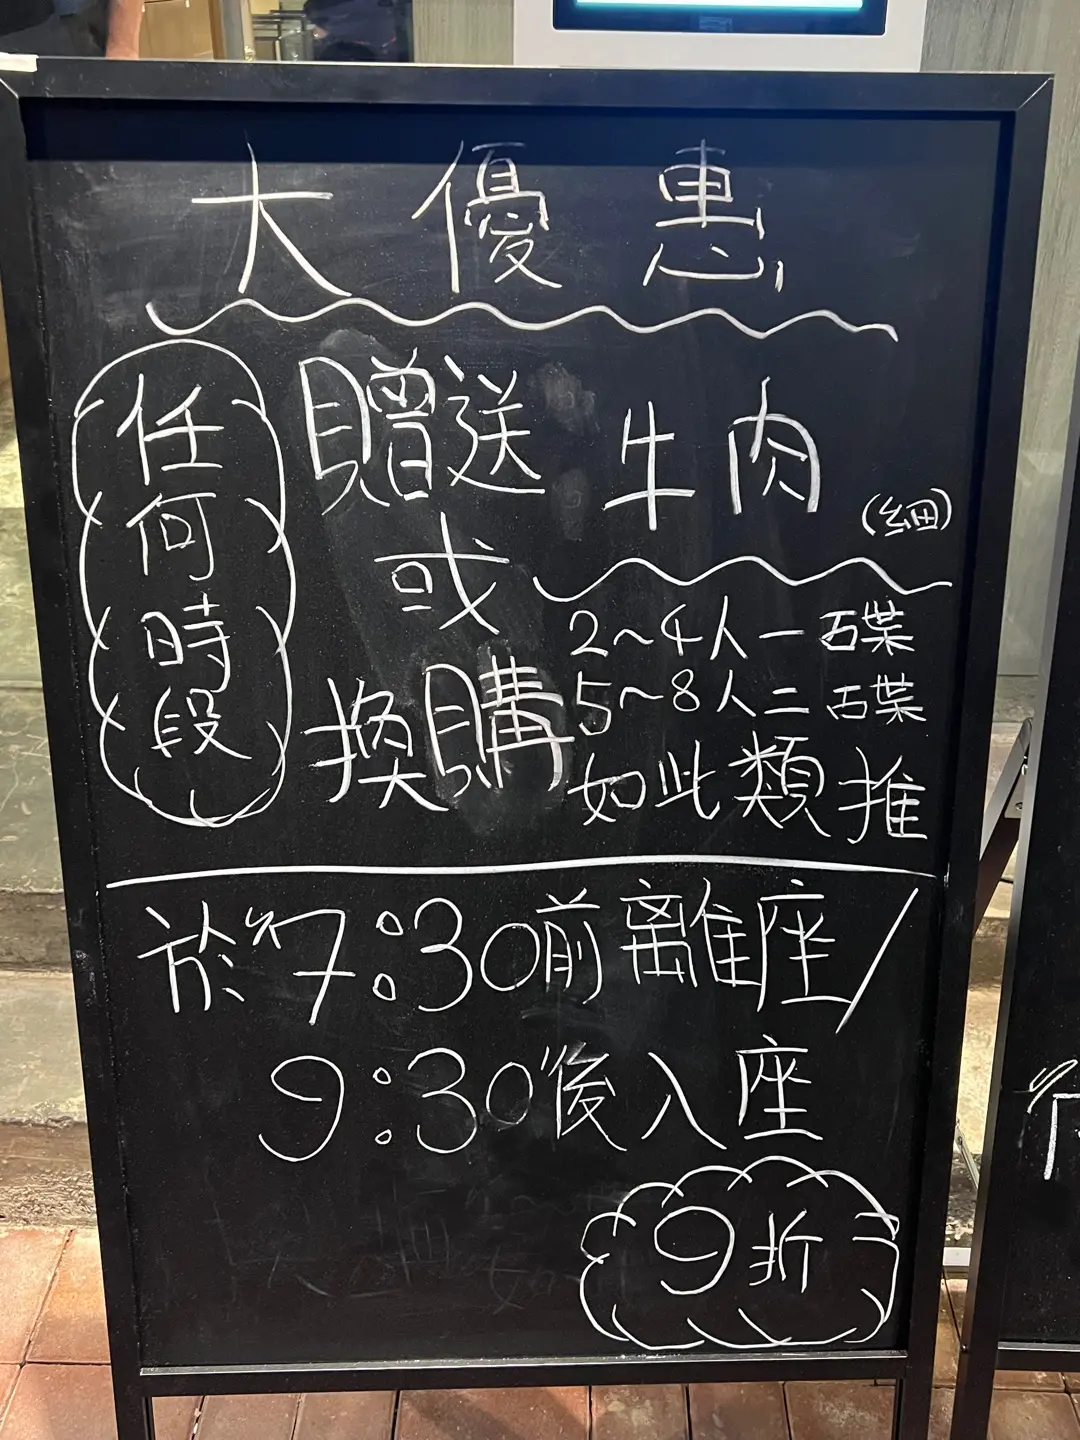 大優惠
任何時段
贈送
或
換購
牛肉(細)
2~4人一碟
5~8人二碟
如此類推
於7:30前離座/
9:30後入座
9折